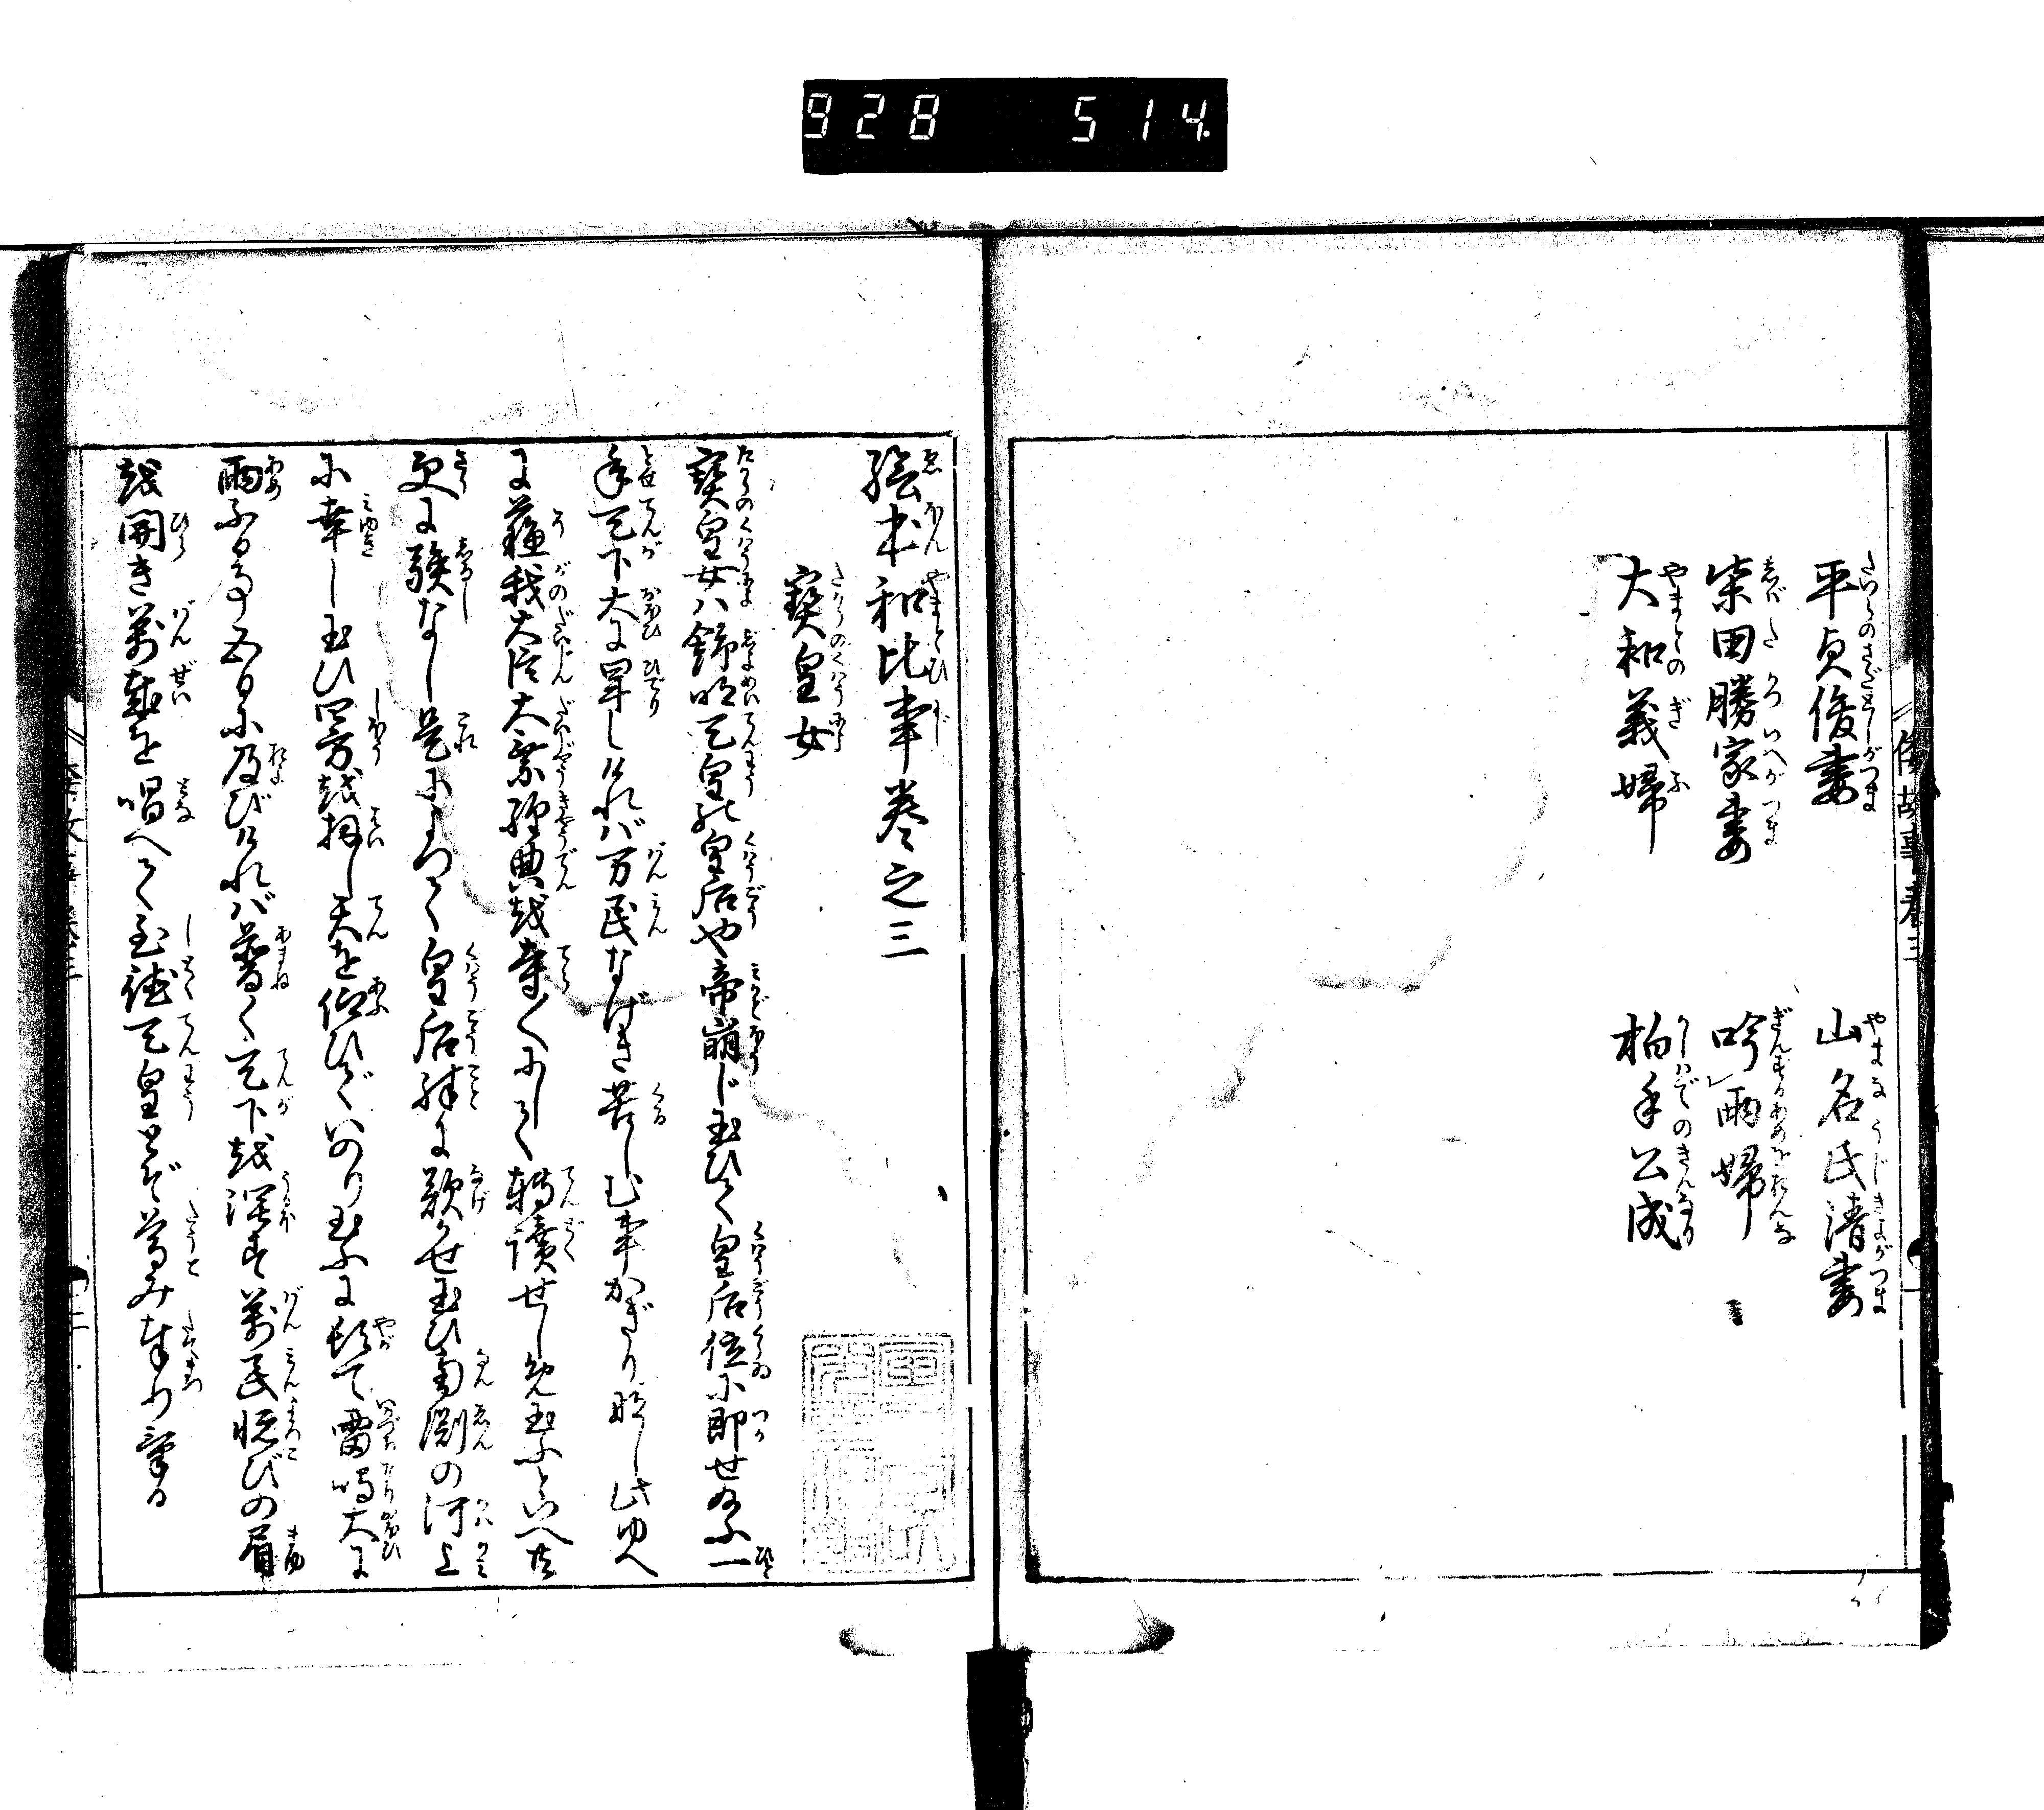 928 514
平貞俊妻
山名氏清妻
柴田勝家妻
吟雨婦
大和義婦
柏手公成
絵本和比事巻之三
寶皇女
寶皇女ハ舒明天皇の皇后也帝崩じ玉ひて皇后位に即せ給ふ一
年天下大に旱しけれバ万民なげき苦しむ事かぎりなし此ゆへ
に蘇我大臣大乗経典を寺〳〵にして轉讀せしめ玉ふといへ共
更に驗なし是によつて皇后殊に歎かせ玉ひ南渕の河上
に幸し玉ひ四方を拝し天を仰ひでいのり玉ふに頓て雷鳴大に
雨ふる事五日に及びけれバ普く天下を深す萬民悦びの眉
を開き萬歳を唱へて至徳天皇とぞ尊み奉り